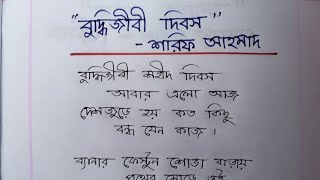 "বুদ্ধিজীবী দিবস"
- শারিফ আহমাদ
বুদ্ধিজীবী শহীদ দিবস
আবার এলো আজ
দেশজুড়ে হয় কত কিছু
বন্ধ যেন কাজ।
ব্যানার ফেস্টুন শোভা বাড়ায়
পথের মোড়ে